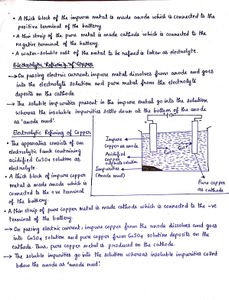 • A thick block of the impure metal is made anode which is connected to the
positive terminal of the battery
• A thin strip of the pure metal is made cathode which is connected to the
negative terminal of the battery.
• A water-soluble salt of the metal to be refined is taken as electrolyte.
Electrolytic Refining of Copper
→ On passing electric current, impure metal dissolves from anode and goes
into the electrolyte solution and pure metal from the electrolyte
deposits on the cathode
→ The soluble impurities present in the impure metal go into the solution
whereas the insoluble impurities settle down at the bottom of the anode
as 'anode mud'.
Electrolytic Refining of Copper
• The apparatus consists of an
electrolytic tank containing
acidified CuSO4 solution as
electrolyte.
• A thick block of impure copper
metal is made anode which is
connected to the +ve terminal
of the battery.
Impure Copper
as anode
Acidified
copper
solution
Impurities
(Anode mud)
Pure copper
as cathode
• A thin strip of pure copper metal is made cathode which is connected to the -ve
terminal of the battery.
→ On passing electric current, impure copper from the anode dissolves and goes
into CuSO4 solution and pure copper from CuSO4 solution deposits on the
cathode. Thus, pure copper metal is produced on the cathode.
→ The soluble impurities go into the solution whereas insoluble impurities
below the anode as 'anode mud'.